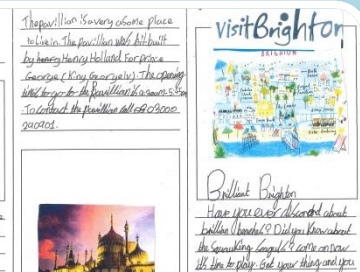 The pavillion is a very osome place
to live in. The pavillion was bilt built
by Henry Holland for prince
George (King George iv). The opening
time to go to the pavillion is 9:30am-5:45pm
To contact the pavillion call 03000
290901.
visitBrighton
BRIGHTON
Brilliant Brighton
Have you ever about
brillian beaches? Did you know about
the Squawking Seagulls? come on now
it's time to play. Get your thing and you